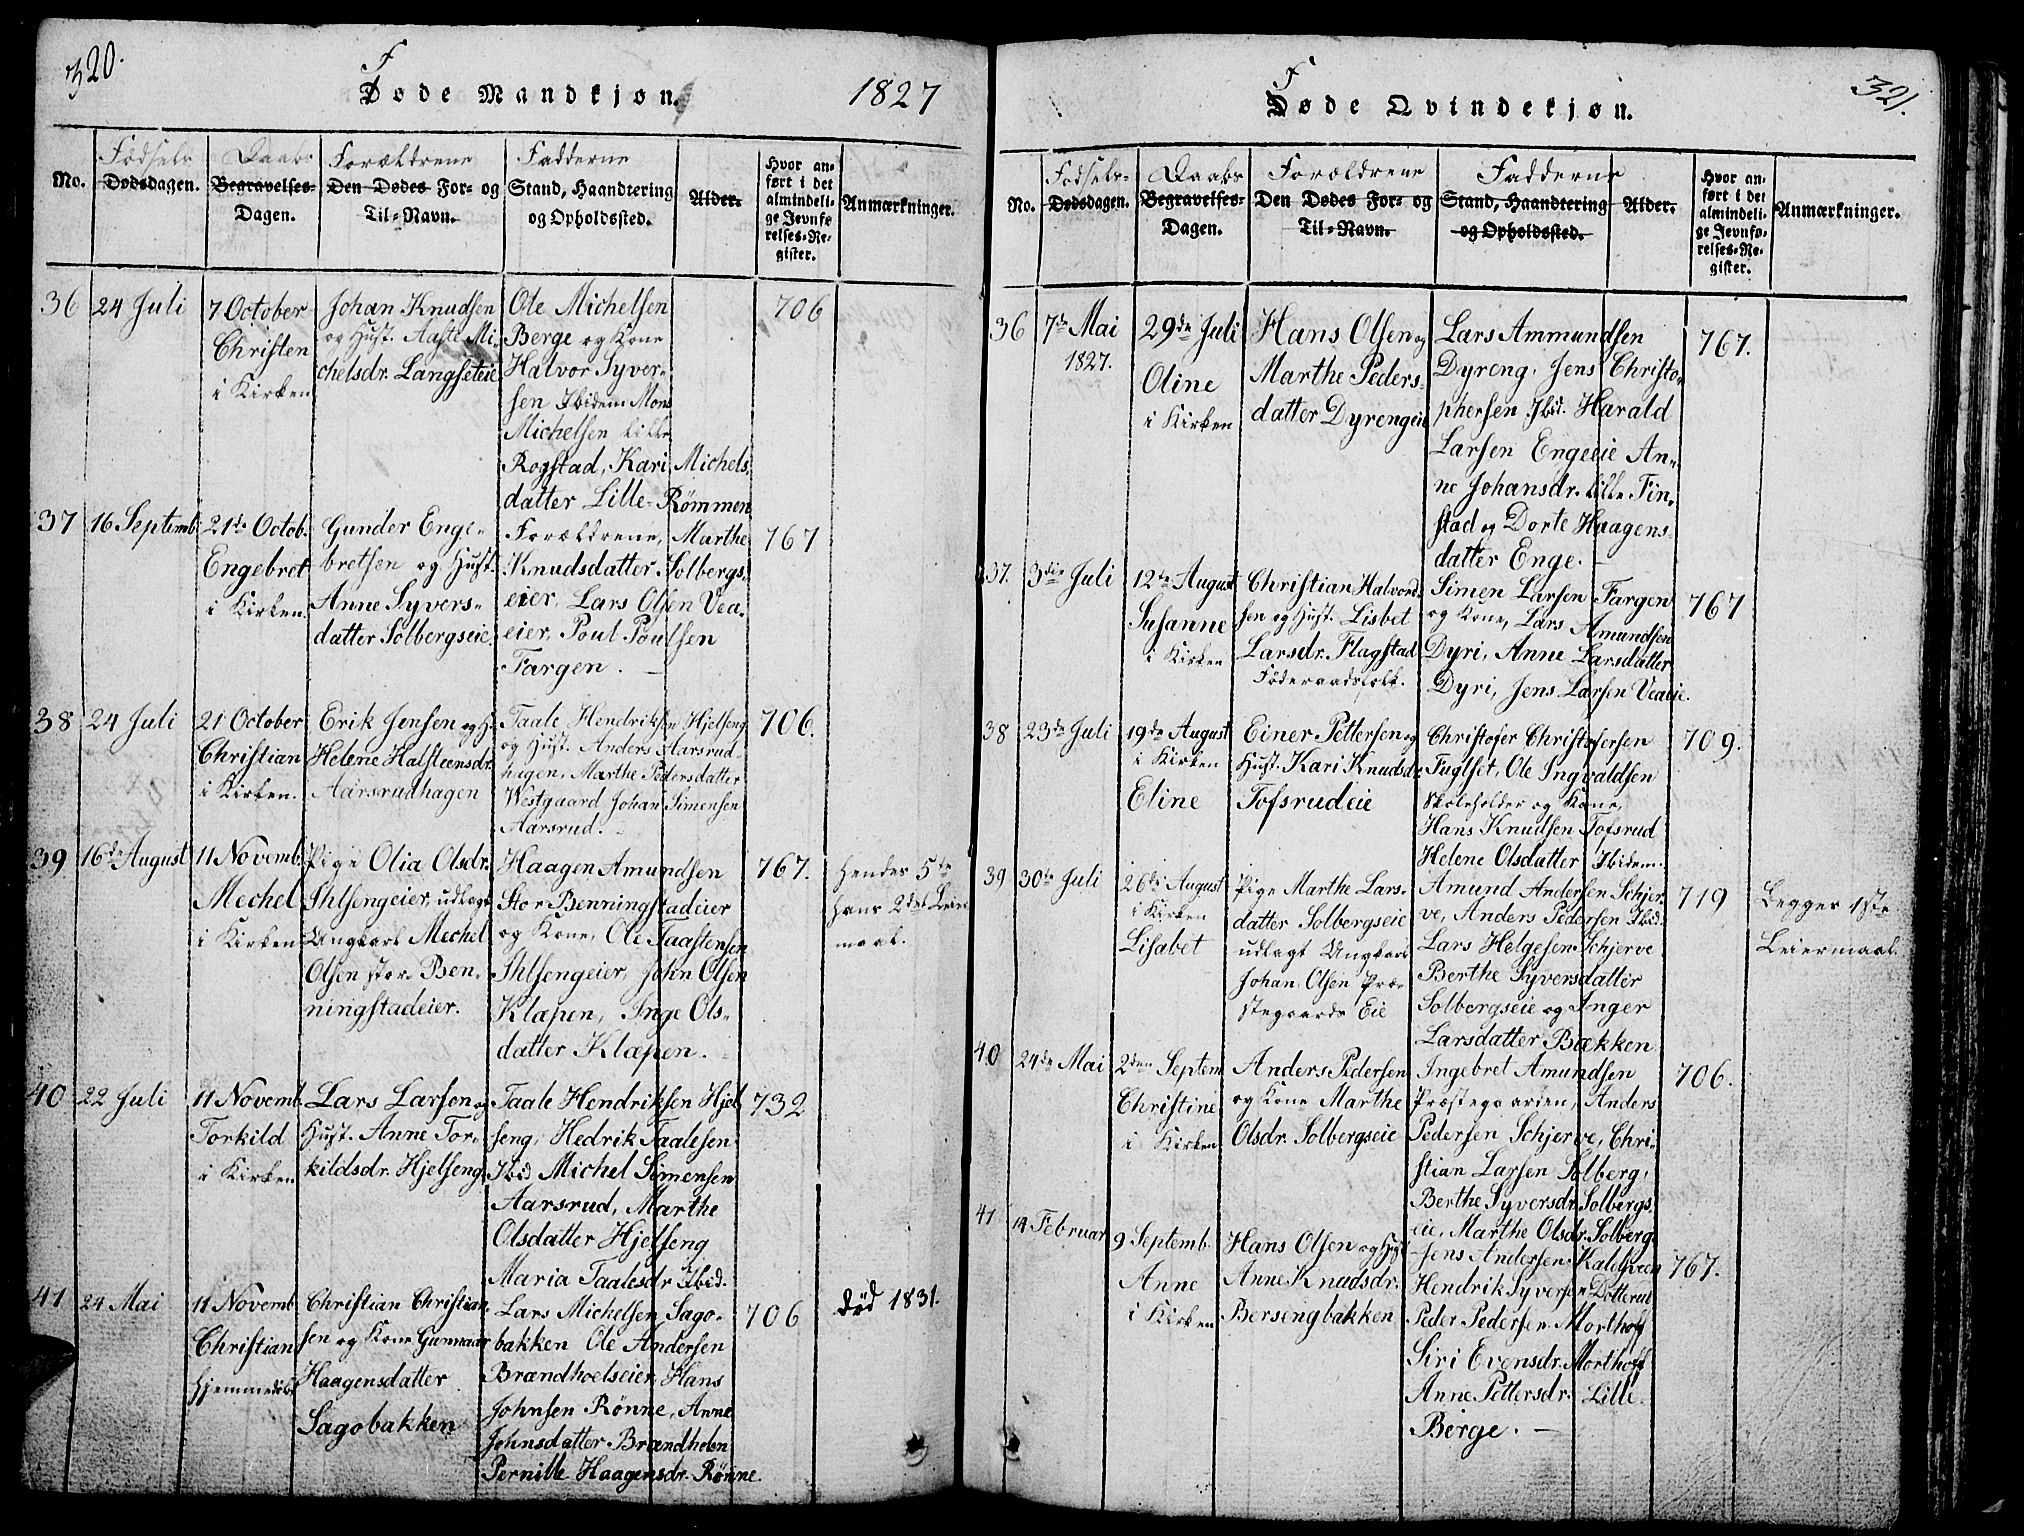 320.
Fødte Mandkjøn.
1827
No.
Fødsels-
Dødsdagen.
Daabs
Begravelses-
Dagen.
Forældrene
Den Dødes For- og
Til-Navn.
Fadderne
Stand, Haandtering
og Opholdssted.
Alder.
Hvor an-
ført i det
almindeli-
ge Jevnfø
relses-Re-
gister.
Anmærkninger.
36
24 Juli
7 October
Christen
i Kirken
Johan Knudsen
og Hust. Aaste Mi
chelsdr. Langseteie
Ole Michelsen
Berge og Kone
Halvor Syver-
sen Ibidem Mons
Michelsen Lille
Rogstad, Kari Michels
datter Lille-Rømmen
706
37
16 Septemb.
21de Octob.
Engebret
i Kirken.
Gunder Enge-
bretsen og Hust.
Anne Syvers-
datter Solbergseie
Forældrene, Marthe
Knudsdatter Solbergs-
eier, Lars Olsen Vea-
eier, Poul Poulsen
Fargen.
767
38
24 Juli
21 October
Christian
i Kirken.
Erik Jensen og H.
Helene Halsteensdr.
Aarsrudhagen
Taale Hendriksen Hjelseng
og Hust. Anders Aarsrud-
hagen, Marthe Pedersdatter
Westgaard Johan Simensen
Aarsrud.
706.
39
16de August
11 Novemb.
Mechel
i Kirken
Pige Olia Olsdr.
Ihlsengeier, udlagt
Ungkarl Mechel
Olsen stor Ben-
ningstadeier.
Haagen Amundsen
Stor Benningstadeier
og Kone, Ole Taastensen
Ihlsengeier, John Olsen
Klæpen, Inge Ols-
datter Klæpen.
767.
Hendes 5te
hans 2det Leier
maal.
40
22 Juli
11 Novemb.
Torkild
i Kirken
Lars Larsen og
Hust. Anne Tor-
kildsdr. Hjelseng
Taale Hendriksen Hjel
seng, Hedrik Taalesen
Ibid Michel Simensen
Aarsrud, Marthe
Olsdatter Hjelseng
Maria Taalesdr Ibid.
732
41
24 Mai
11 Novemb.
Christian
Hjemmedøbt
Christian Christian
sen og Kone Gunnaar
Haagensdatter
Sagobakken
Lars Mickelsen Sago-
bakken Ole Andersen
Brændhoelseier Hans
Johnsen Rønne, Anne
Johnsdatter Brændholen
Pernille Haagensdr. Rønne.
706
død 1831.
321.
Fødte Qvindekjøn.
No.
Fødsels-
Dødsdagen.
Daabs
Begravelses-
Dagen.
Forældrene
Den Dødes For- og
Til-Navn.
Fadderne
Stand, Haandtering
og Opholdssted.
Alder.
Hvor an-
ført i det
almindeli-
ge Jevnfø-
relses-Re-
gister.
Anmærkninger.
36
7de Mai
1827.
29de Juli
Oline
i Kirken
Hans Olsen og
Marthe Peders-
datter Dyrengeie
Lars Ammundsen
Dyreng, Jens Christo-
phersen Ibid. Harald
Larsen Engeeie An-
ne Johansdr. Lille Fin-
stad og Dorte Haagens-
datter Enge.
767.
37.
3die Juli
12te August
Susanne
i Kirken
Christian Halvord-
sen og Hust. Lisbet
Larsdr. Flagstad
Föderaadsfolk.
Simen Larsen Fargen
og Kone, Lars Amundsen
Dyri, Anne Larsdatter
Dyri, Jens Larsen Veaeie.
767
38
23de Juli
19de August
i Kirken
Eline
Einer Pettersen og
Hust. Kari Knudsdr.
Tofsrudeie
Christofer Christofersen
Fuglset, Ole Ingvaldsen
Skoleholder og Kone,
Hans Knudsen Tofsrud
Helene Olsdatter Ibidem.
709.
39
30te Juli
26de August
i Kirken
Lisabet
Pige Marthe Lars-
datter Solbergseie
udlagt Ungkarl
Johan Olsen Præ-
stegaards Eie
Amund Andersen Schjer-
ve, Anders Pedersen Ibid.
Lars Helgesen Schjerve
Berthe Syversdatter
Solbergseie og Inger
Larsdatter Bækken
719
Begges 1ste
Leiermaal
40
24de Mai
2den Septem
Christine
i Kirken
Anders Pedersen
og Kone Marthe
Olsdr. Solbergseie
Ingebret Amundsen
Præstegaarden, Anders
Pedersen Schjerve, Chri-
stian Larsen Solberg,
Berthe Syversdr. Solbergs
eie, Marthe Olsdr. Solberg.
706.
41
14 Februar
9 Septemb.
Anne
i Kirken
Hans Olsen og Hust
Anne Knudsdr.
Bersengbakken
Jens Andersen Kaldsveen
Hendrik Syversen Dotterud
Peder Pedersen Morthoff
Siri Evensdr. Morthoff
Anne Pettersdr. Lille
Berge.
767.